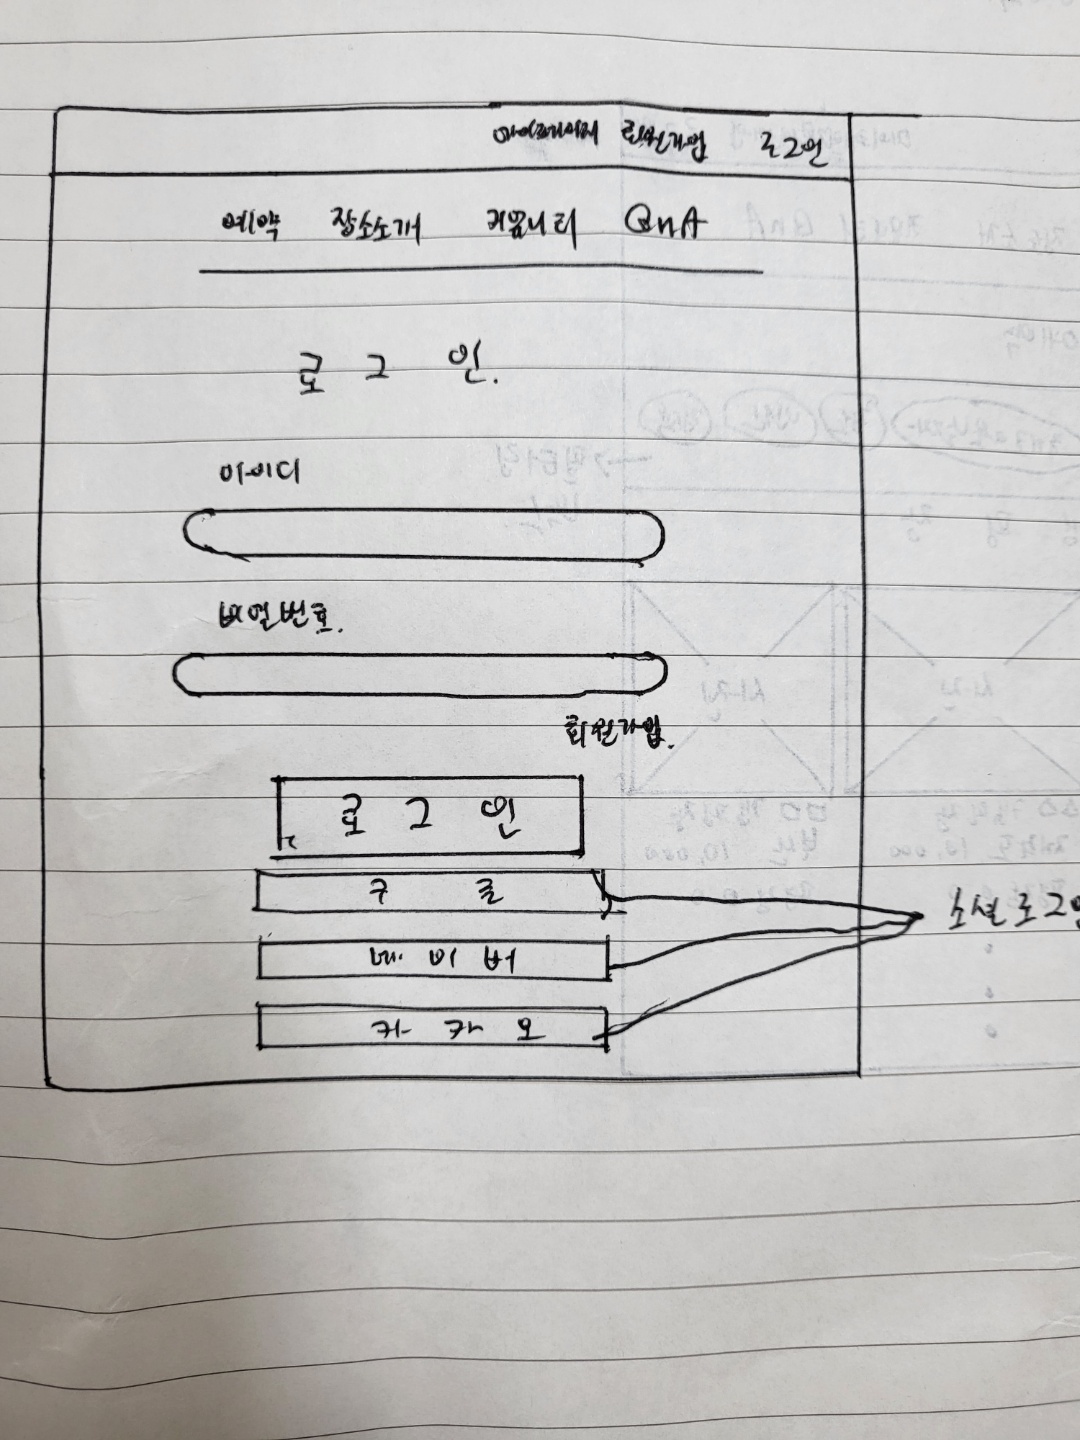 마이페이지 회원가입 로그인
예약 장소소개 커뮤니티 QnA
로그인.
아이디
비밀번호.
회원가입.
로그인
구글
네이버
카카오
소셜로그인